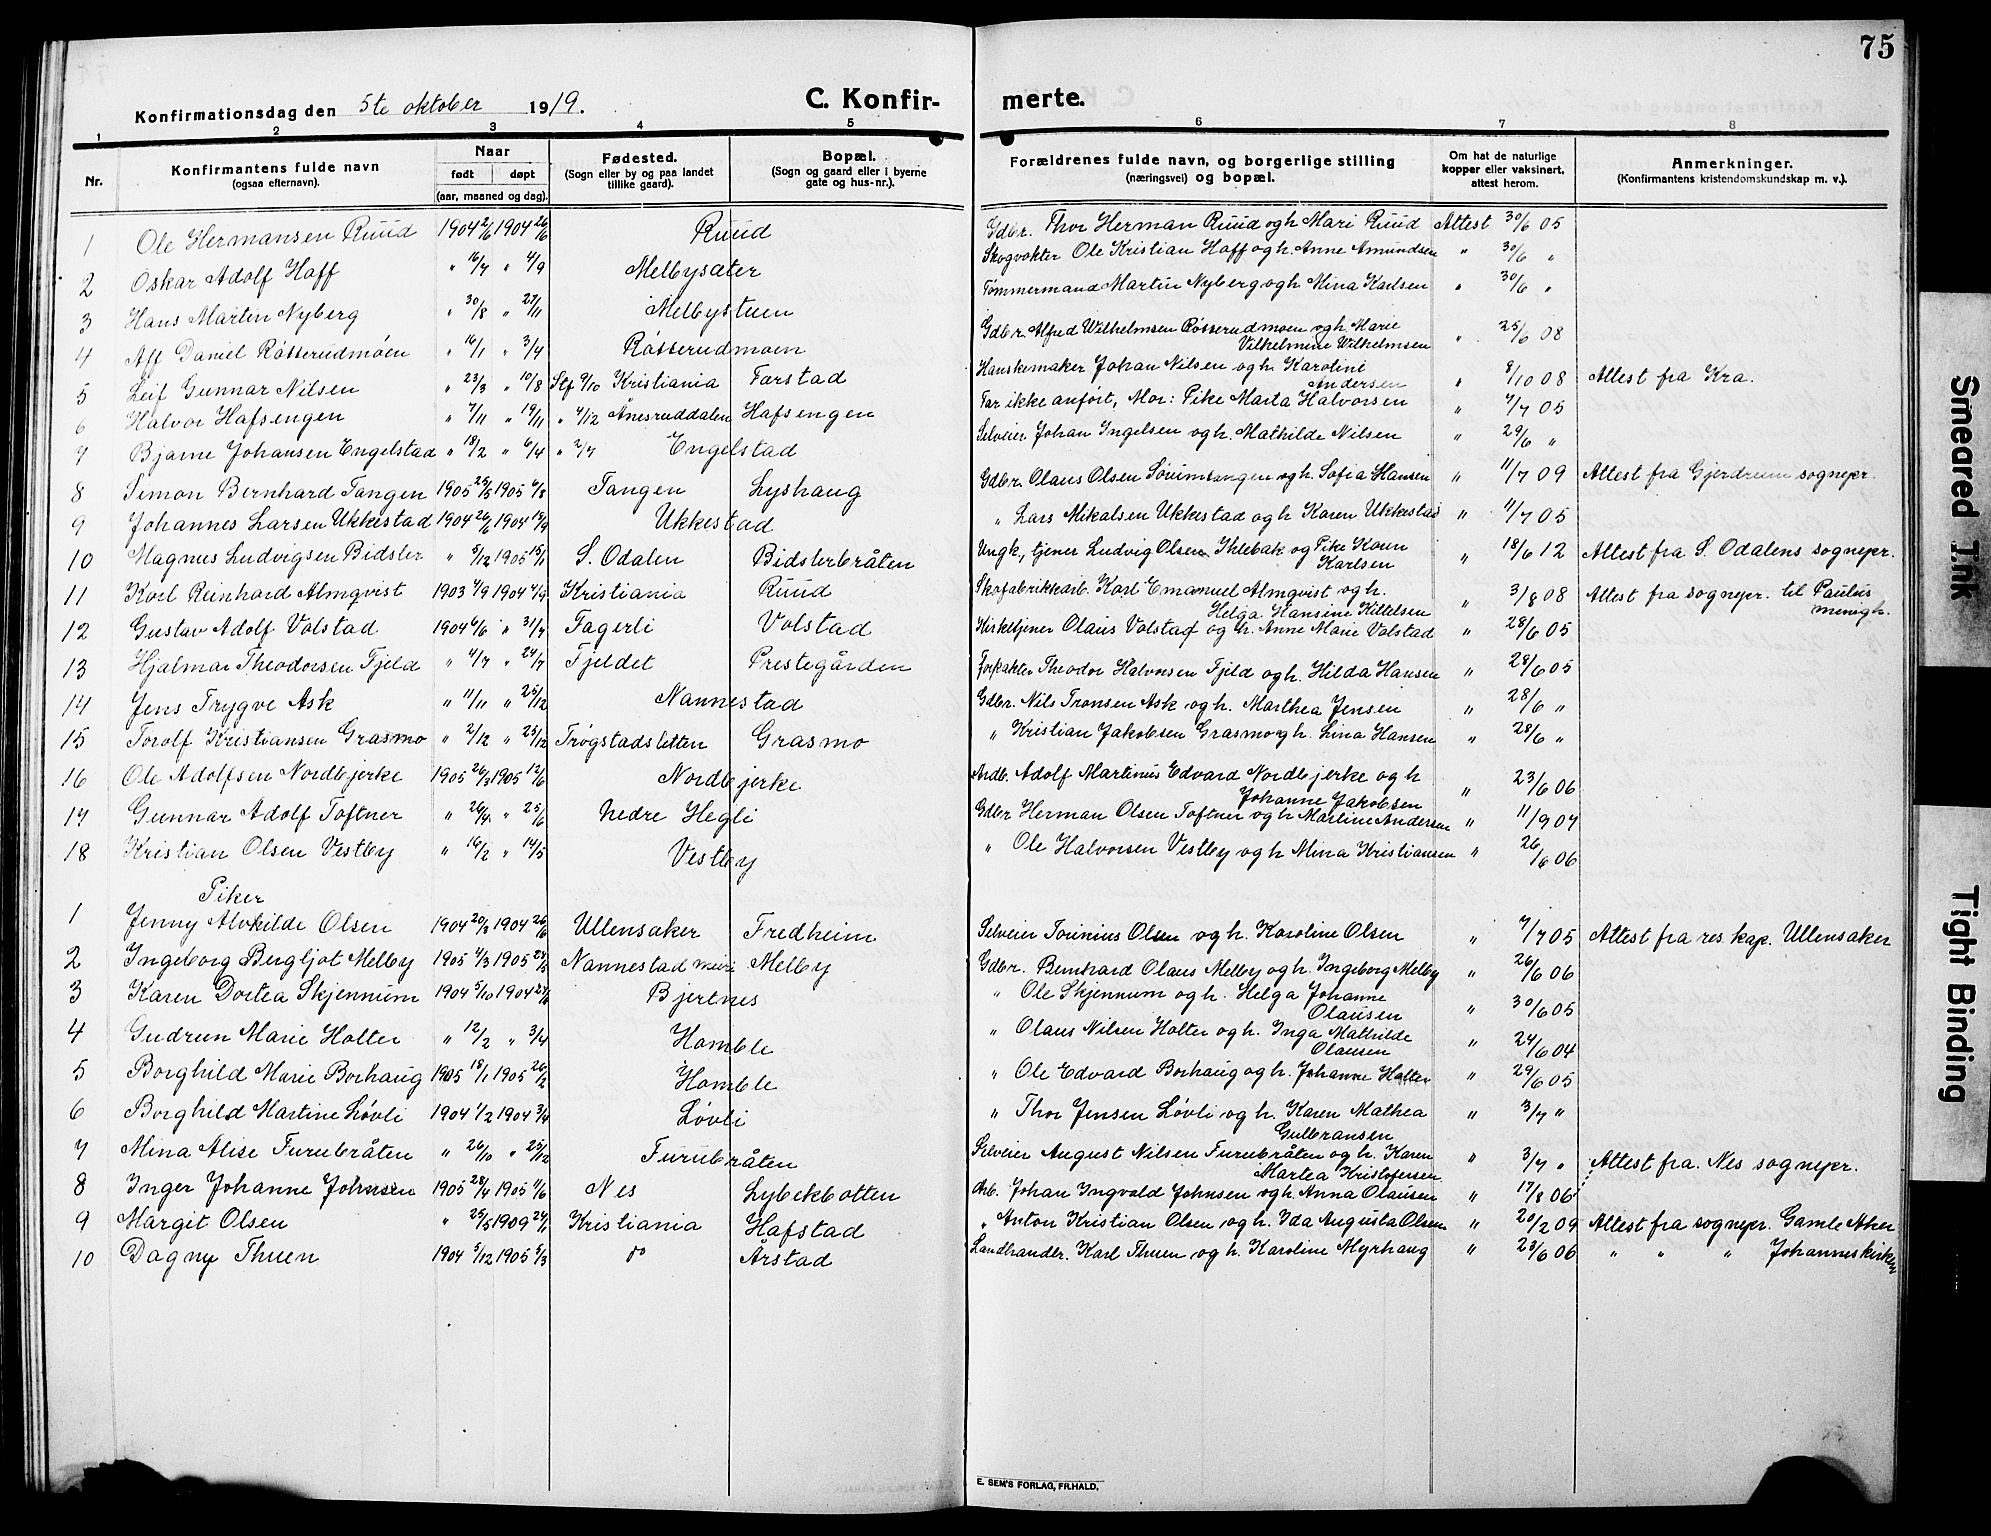 75
Konfirmationsdag den 5te oktober 1919.
C. Konfir-
merte.
1 2 3 4 5 6 7 8
Nr.
Konfirmantens fulde navn
(ogsaa efternavn).
Naar
født døpt
(aar, maaned og dag).
Fødested.
(Sogn eller by og paa landet
tillike gaard).
Bopæl.
(Sogn og gaard eller i byerne
gate og hus-nr.).
Forældrenes fulde navn, og borgerlige stilling
(næringsvei) og bopæl.
Om hat de naturlige
kopper eller vaksinert,
attest herom.
Anmerkninger.
(Konfirmantens kristendomskundskap m. v.).
1 Ole Hermansen Ruud 1904 2/6 1904 26/6 Ruud Gdbr. Thor Herman Ruud og h. Mari Ruud Attest 30/6 05
2 Oskar Adolf Haff " 16/7 " 4/9 Melbysæter Skogvokter Ole Kristian Haff og h. Anne Amundsen " 30/6 "
3 Hans Martin Nyberg " 30/8 " 27/11 Melbystuen Tømmermand Martin Nyberg og h Mina Karlsen " 30/6 "
4 Alf Daniel Røsserudmoen " 16/1 " 3/4 Røsserudmoen Gdbr. Alfred Wilhelmsen Røsserudmoen og h. Marie
Vilhelmine Wilhelmsen " 25/6 08
5 Leif Gunnar Nilsen " 23/3 " 10/8 Stf 9/10 Kristiania Farstad Hanskemaker Johan Nilsen og h. Karoline
Andersen " 8/10 08 Attest fra Kra.
6 Halvor Hafsengen " 7/11 " 19/11 " 4/12 Ånesruddalen Hafsengen Far ikke anført, Mor: Pike Marta Halvorsen " 7/7 05
7 Bjarne Johansen Engelstad " 18/2 " 6/4 " 2/7 Engelstad Selveier Johan Ingelsen og h. Mathilde Nilsen " 29/6 "
8 Simon Bernhard Tangen 1905 25/5 1905 6/8 Tangen Lyshaug Gdbr. Olaus Olsen Sørumtangen og h. Sofia Hansen " 11/7 09 Attest fra Gjerdrum sognepr.
9 Johannes Larsen Ukkestad 1904 26/6 1904 18/9 Ukkestad " Lars Mikalsen Ukkestad og h. Karen Ukkestad " 11/7 05
10 Magnus Ludvigsen Bidsler " 5/12 1905 15/1 S. Odalen Bidslerbråten Ungk., tjener Ludvig Olsen Ihlebæk og Pike Karen
Karlsen " 18/6 12 Attest fra S. Odalens sognepr.
11 Karl Reinhard Almqvist 1903 4/9 1904 4/9 Kristiania Ruud Skofabrikkarb. Karl Emanuel Almqvist og h.
Helga Hansine Kittelsen " 3/8 08 Attest fra sognepr. til Paulus
menigh.
12 Gustav Adolf Volstad 1904 6/6 " 31/7 Fagerli Volstad Kirketjener Olaus Volstad og h. Anne Marie Volstad " 28/6 05
13 Hjalmar Theodorsen Fjeld " 4/7 " 24/7 Fjeldet Prestegården Forpakter Theodor Halvorsen Fjeld og h. Hilda Hansen " 28/6 05
14 Jens Trygve Ask " 11/11 " 25/12 Nannestad Gdbr. Nils Tronsen Ask og h. Marthea Jensen " 28/6 "
15 Torolf Kristiansen Grasmo " 2/12 " 25/12 Trøgstadsletten Grasmo " Kristian Jakobsen Grasmo og h. Lina Hansen " 28/6 "
16 Ole Adolfsen Nordbjerke 1905 26/3 1905 12/6 Nordbjerke Ardbr. Adolf Martinus Edvard Nordbjerke og h
Johanne Jakobsen " 23/6 06
17 Gunnar Adolf Toftner " 26/4 " 25/6 Nedre Hegli Gdbr Herman Olsen Toftner og h Martine Andersen " 11/9 07
18 Kristian Olsen Vestby " 16/2 " 14/5 Vestby " Ole Halvorsen Vestby og h Mina Kristiansen " 26/6 06
Piker
1 Jenny Alvhilde Olsen 1904 20/3 1904 26/6 Ullensaker Fredheim Selveier Torinius Olsen og h. Karoline Olsen " 7/7 05 Attest fra res. kap. Ullensaker
2 Ingeborg Bergljot Melby 1905 4/3 1905 28/5 Nannestad Melby Gdbr. Bernhard Olaus Melby og h. Ingeborg Melby " 26/6 06
3 Karen Dortea Skjennum 1904 5/10 1904 27/11 Bjertnes " Ole Skjennum og h. Helga Johanne
Olausen " 30/6 05
4 Gudrun Marie Holter " 12/2 " 3/4 Homble " Olaus Nilsen Holter og h. Inga Mathilde
Olausen " 24/6 04
5 Borghild Marie Borhaug 1905 18/1 1905 26/2 Homble " Ole Edvard Borhaug og h. Johanne Holter " 29/6 05
6 Borghild Martine Løvli 1904 1/2 1904 3/4 Løvli " Thor Jensen Løvli og h. Karen Mathea
Gulbransen " 3/7 "
7 Mina Alise Furubråten " 26/10 " 25/12 Furubråten Selveier August Nilsen Furubråten og h. Karen
Martea Kristofersen " 3/7 " Attest fra. Nes sognepr.
8 Inger Johanne Johnsen 1905 28/4 1905 11/6 Nes Lybekbotten Arb. Johan Ingvald Johnsen og h. Anna Olausen " 17/8 06
9 Margit Olsen " 25/5 1909 24/1 Kristiania Hafstad " Anton Kristian Olsen og h. Ida Augusta Olsen " 20/2 09 Attest fra sognepr. Gamle Aker
10 Dagny Thuen 1904 5/12 1905 5/3 do Årstad Landhandler. Karl Thuen og h. Karoline Myrhaug " 23/6 06 " " " Johanneskirken
E. SEM'S FORLAG, FR.HALD.
Smeared Ink
Tight Binding